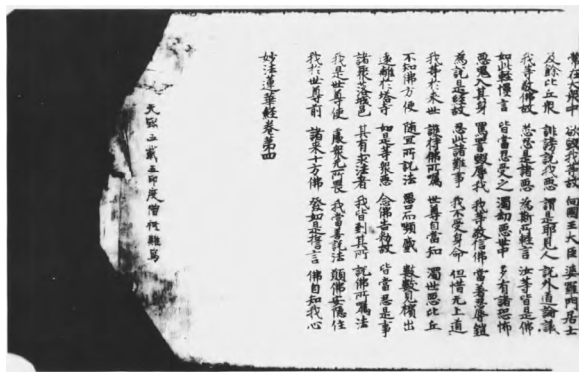 常在大衆中 欲毀我等故 向國王大臣 婆羅門居士
及餘比丘衆 誹謗說我惡 謂是耶見人 說外道論議
我等敬佛故 悉忍是諸惡 為斯所輕言 汝等皆是佛
如此輕慢言 皆當忍受之 濁劫惡世中 多有諸恐怖
惡鬼入其身 罵詈毀辱我 我等敬信佛 當著忍辱鎧
為說是經故 忍此諸難事 我不愛身命 但惜无上道
我等於來世 護持佛所囑 世尊自當知 濁世惡比丘
不知佛方便 隨宜所說法 惡口而顰蹙 數數見擯出
遠離於塔寺 如是等衆惡 念佛告勑故 皆當忍是事
諸聚落城邑 其有求法者 我皆到其所 說佛所囑法
我是世尊使 處衆无所畏 我當善說法 願佛安隱住
我於世尊前 諸來十方佛 發如是誓言 佛自知我心
妙法蓮華經卷第四
天 三載 印度僧祇難寫